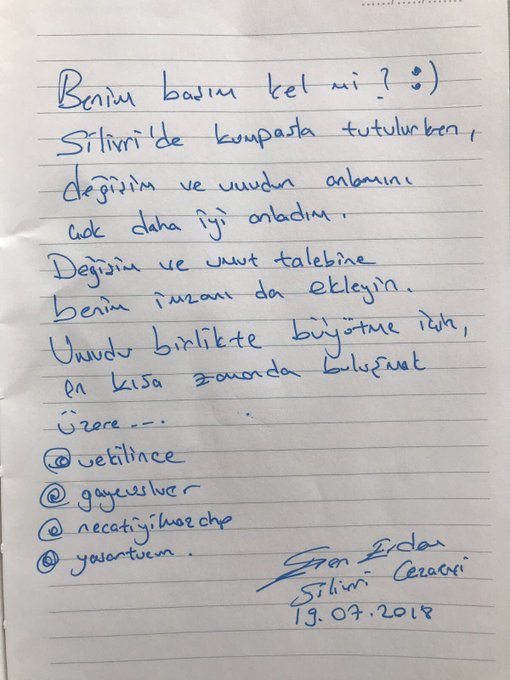 Benim başım kel mi? :)
Silivri'de kumpasta tutulurken,
değişim ve umudun anlamını
çok daha iyi anladım.
Değişim ve umut talebine
benim imzamı da ekleyin.
Umudu birlikte büyütme için,
en kısa zamanda buluşmak
üzere....
@vekilince
@gayeusluer
@necatiyilmazchp
@yasartuzem.
Eren Erdem
Silivri Cezaevi
19.07.2018